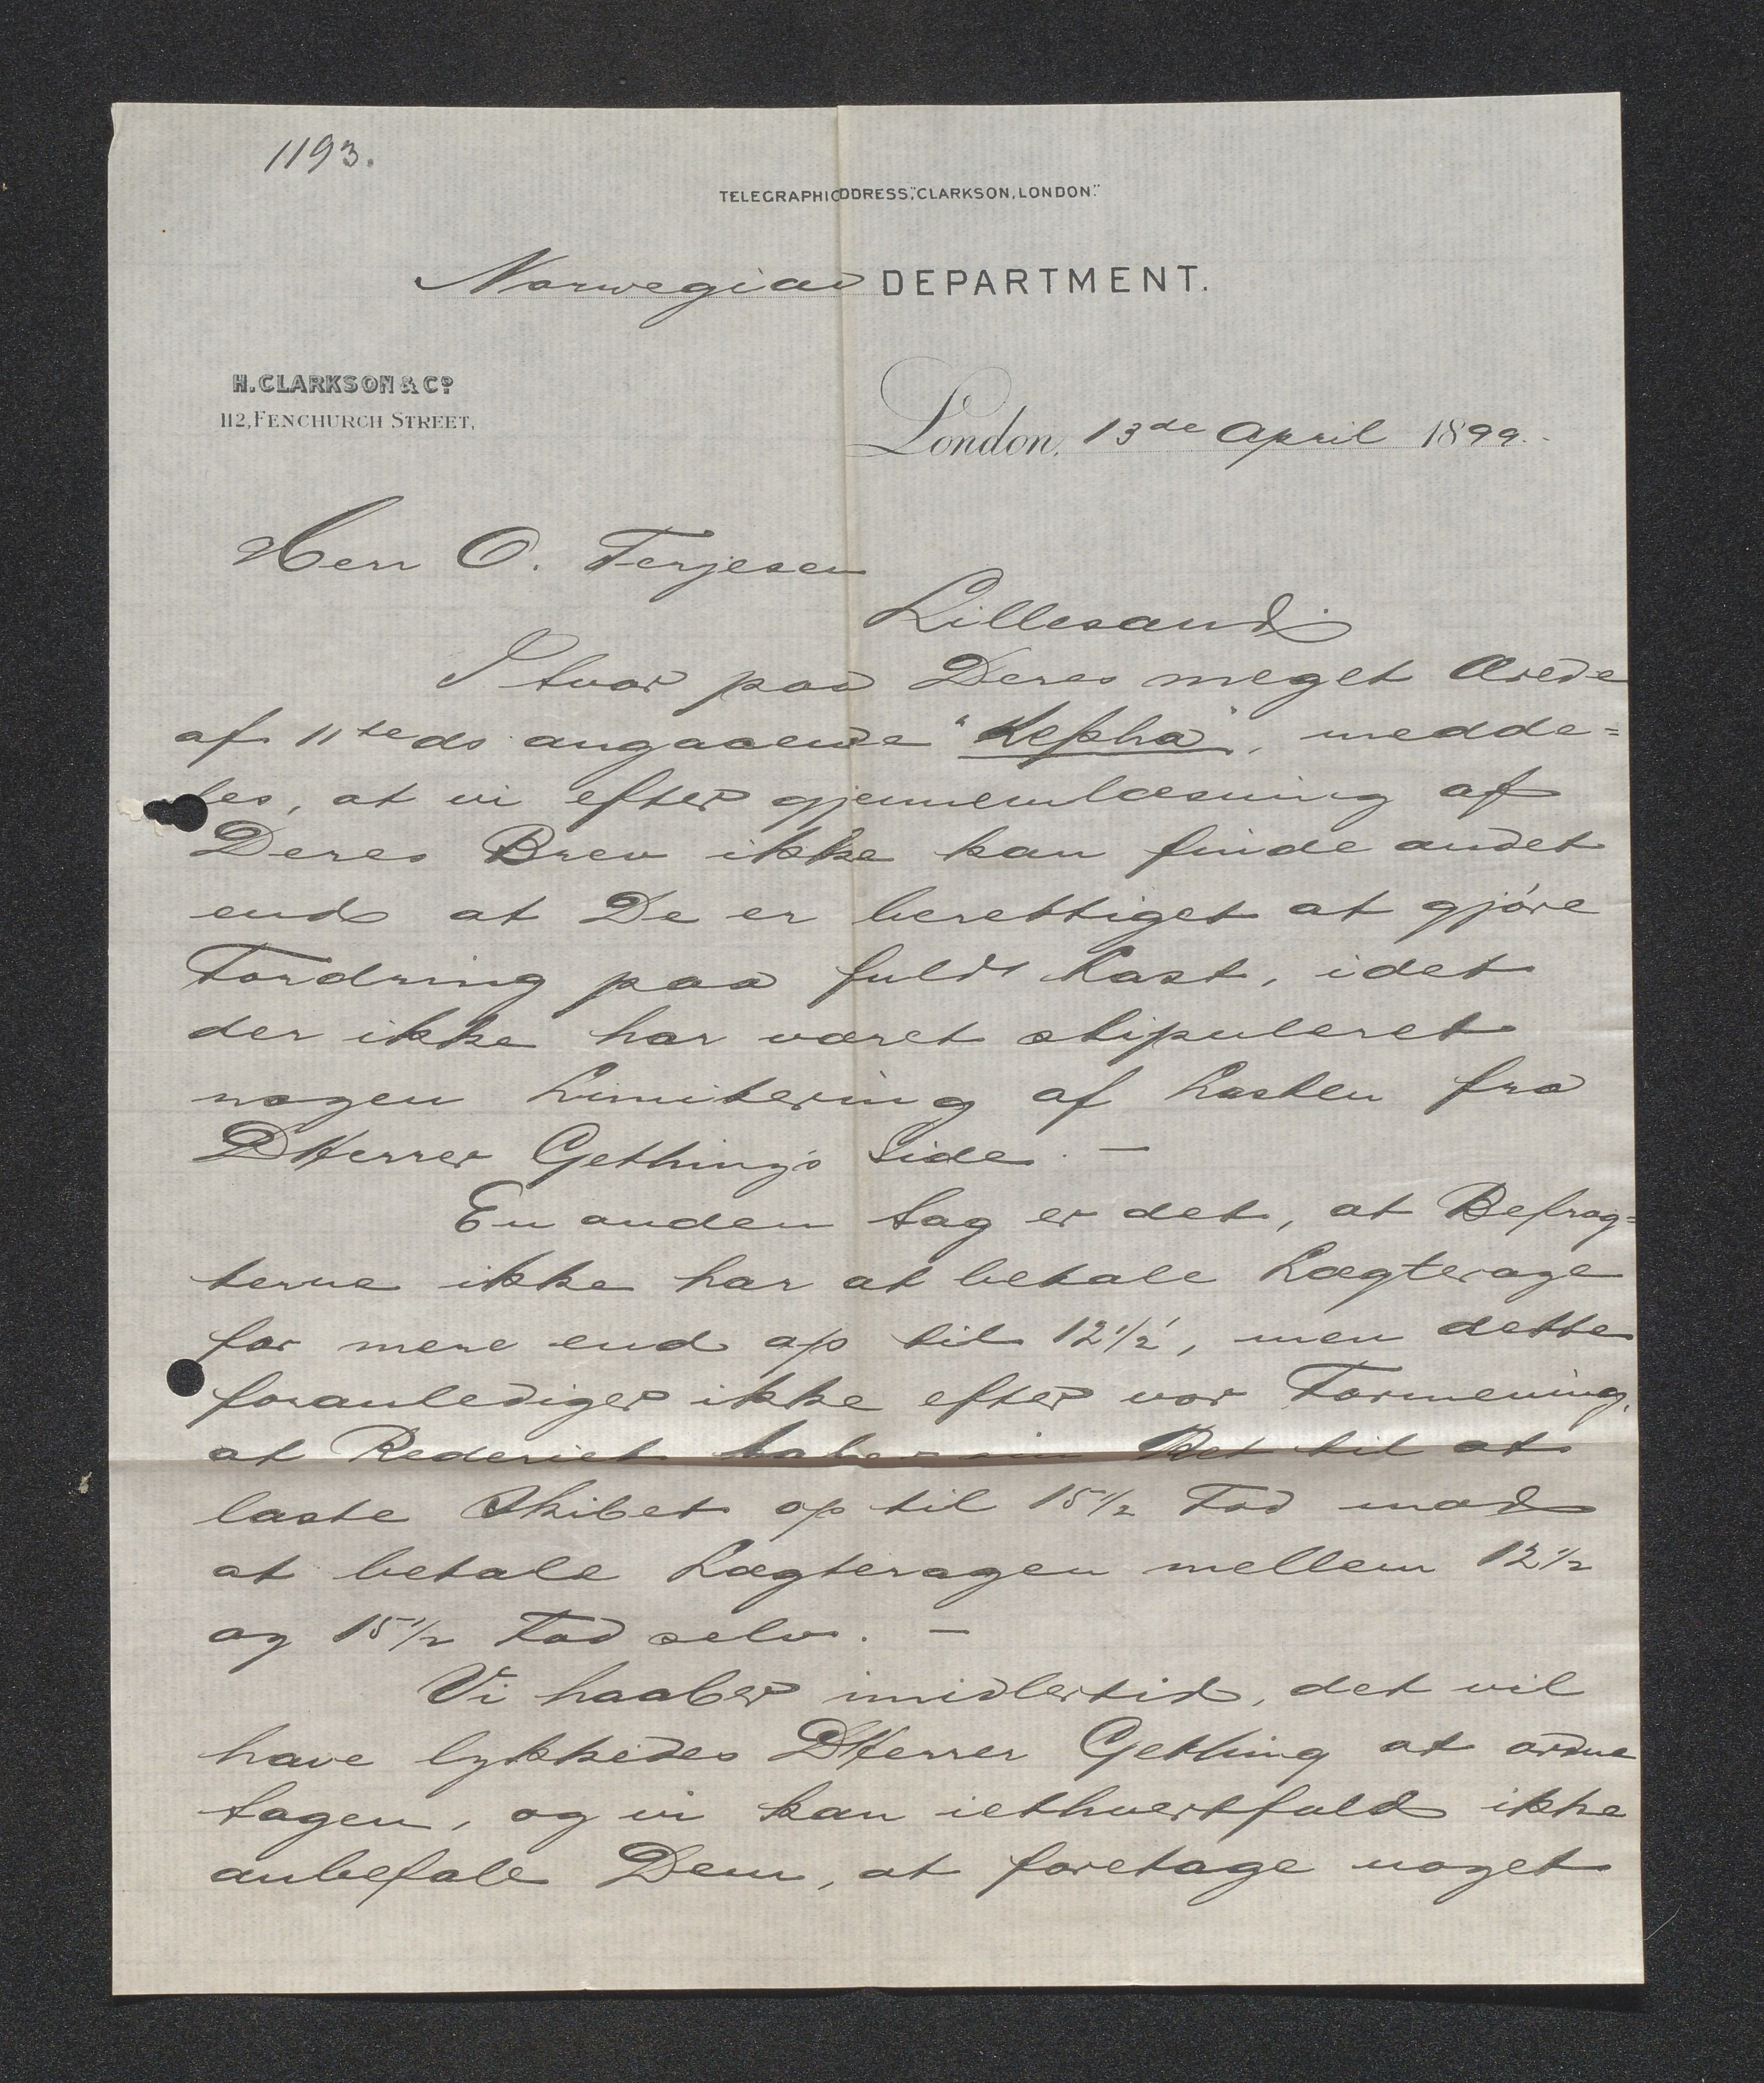 1193.
TELEGRAPHIC DDRESS, "CLARKSON, LONDON."
Norwegian DEPARTMENT.
H. CLARKSON & Co.
112, FENCHURCH STREET,
London, 13de April 1899.
Herr O. Terjesen
Lillesand
I Svar paa Deres meget Ærede
af 11te ds angaaende "Kepha", medde=
les, at vi efter gjennemlæsning af
Deres Brev ikke kan finde andet
end at De er berettiget at gjøre
Fordring paa fuld Last, idet
der ikke har været stipuleret
nogen Limitering af Lasten fra
DHerrer Gething's Side. —
En anden Sag er det, at Befrag=
terne ikke har at betale Lægterage
for mere end op til 12½', men dette
foranlediger ikke efter vor Formening,
at Rederiet taber sin Ret til at
laste Skibet op til 15½ Fod mod
at betale Lægteragen mellem 12½
og 15½ Fod selv. —
Vi haaber imidlertid, det vil
have lykkedes DHerrer Gething at ordne
Sagen, og vi kan iethvertfald ikke
anbefale Dem, at foretage noget